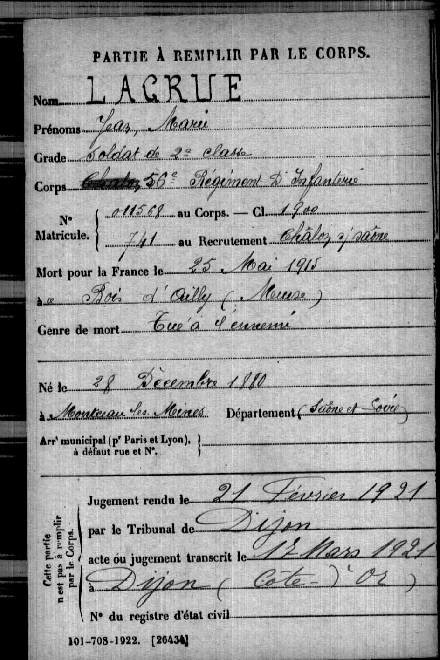 PARTIE À REMPLIR PAR LE CORPS.
Nom LAGRUE
Prénoms Jean, Marie
Grade Soldat de 2e classe
Corps 56e Régiment d'Infanterie
N° Matricule. { 011508 au Corps. — Cl 1900
741 au Recrutement Châlon s/ Saône
Mort pour la France le 25 Mai 1915
à Bois d'Ailly (Meuse)
Genre de mort Tué à l'ennemi
Né le 28 Décembre 1880
à Montceau les Mines Département (Saône et Loire)
Arr' municipal (pr Paris et Lyon), à défaut rue et N°. }
Cette partie n'est pas à remplir par le Corps.
Jugement rendu le 21 Février 1921
par le Tribunal de Dijon
acte ou jugement transcrit le 17 Mars 1921
à Dijon (Côte-d'Or)
N° du registre d'état civil
101-708-1922. [26434]